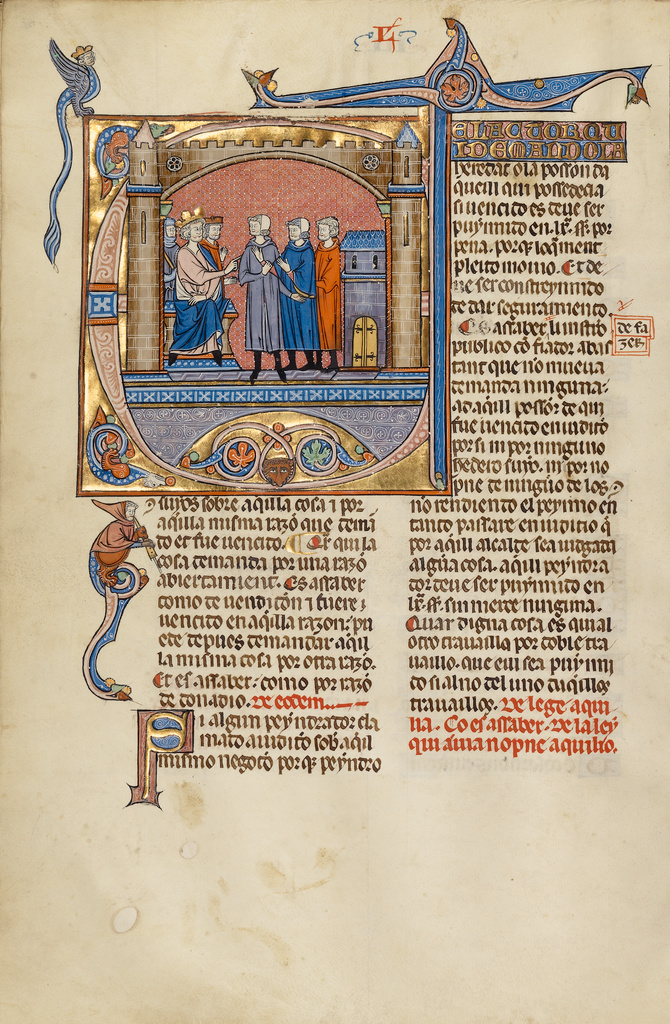 L
ELACTOR QU
I DEMANDO LA
heredat o la possion da
queill qui possedecia
si uencido es deue ser
puymido en .lx. ss. por
pena. porq loqment
pleito mouio. Et de
ue ser constreynnido
de dar seguramiento
Es assaber instrū
de fa
zer
publico cō fiador abas
tant que no mueua
demanda ninguna
ad aqill possor de qui
fue uencido en iudicio
por si ni por ninguno
hedero suyo. ni por no
pne de ningūo de los
suyos sobre aqilla cosa i por
aqilla misma razō que demā
do et fue uencido. Et qui la
cosa demanda por una razō
abiertament. Es assaber
como de uendicōn i fuere
uencido en aqilla razon: pu
ede depues demandar aqill
la misma cosa por otra razō.
Et es assaber. como por razō
de donadio. De eodem.
Si algun peyndrador cla
mado a iudicio sob aqill
mismo negocio por q peyndro
no rendiendo el peymo en
tanto passare en iudicio q
por aqill alcalde sea iudgada
algūa cosa. aqill peyndra
dor deue ser puymido en
lx. ss. sin merce ninguna.
Quar digna cosa es qual
otro trauaillo por doble tra
uaillo. que eill sea puymi
do si al no del uno daqillos
trauaillos. De lege aqui
lia. Co es assaber. De la ley
qui a una nopne aquilio.